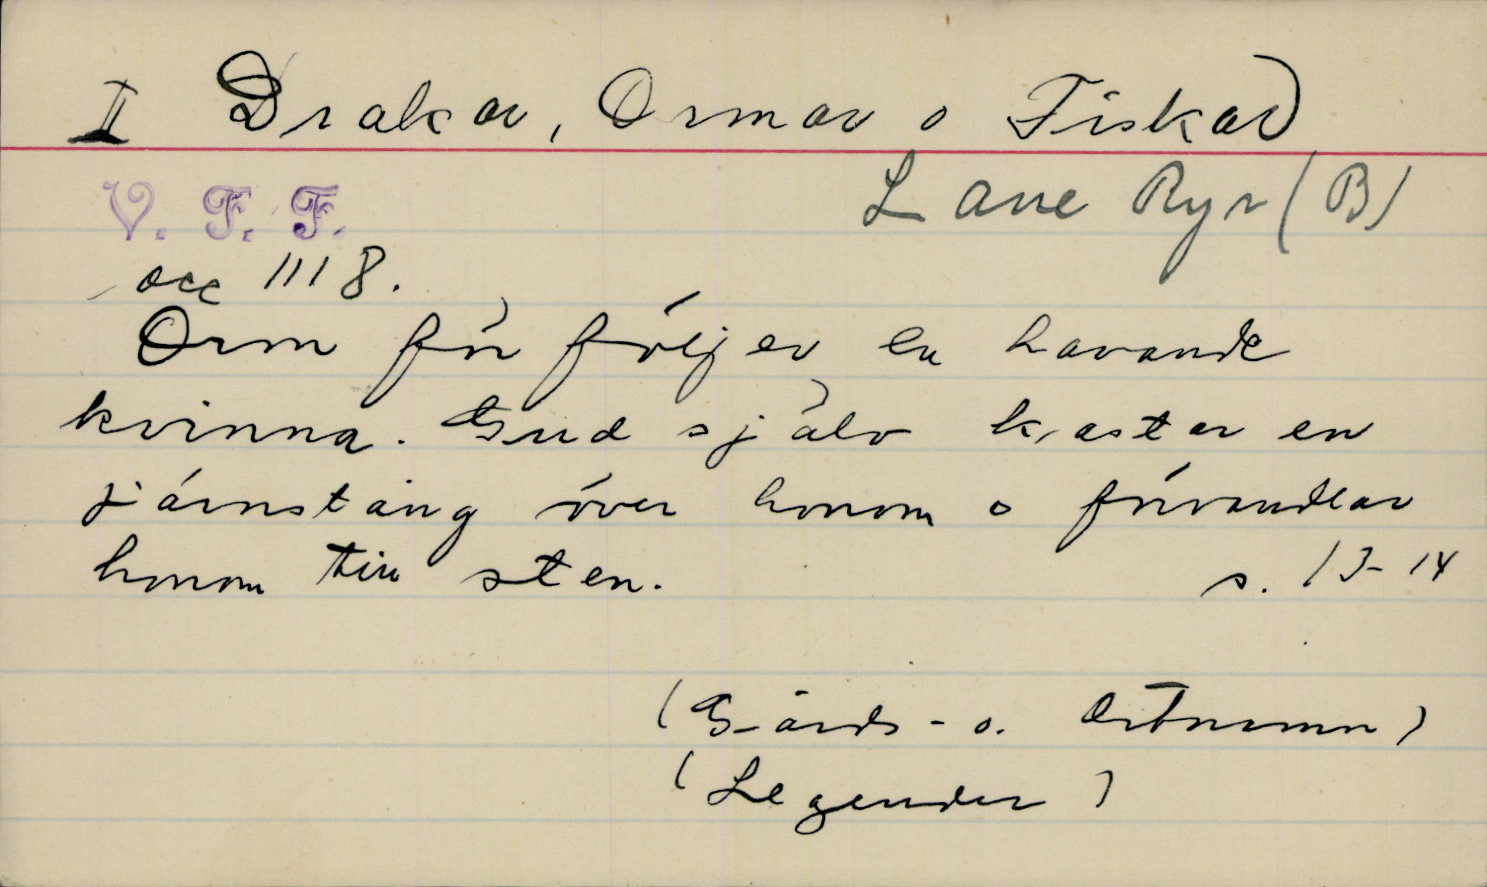 II Drakar, Ormar o Fiskar
Lane Ryr (B)
V. F. F.
acc 1118.
Orm för följer en havande
kvinna. Gud själv kastar en
järnstång över honom o förvandlar
honom till sten. s. 13-14
(Gårds- o. Ortnamn)
(Legender)